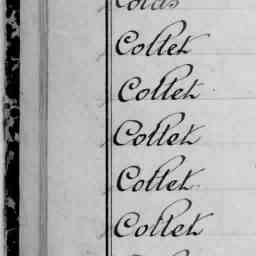 Colas
Collet
Collet
Collet
Collet
Collet